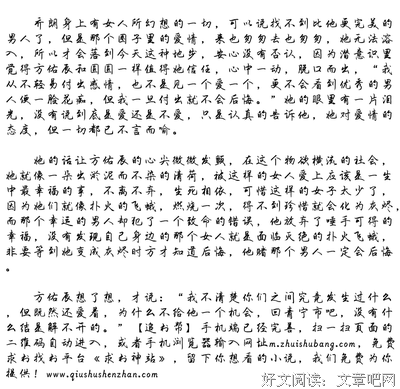 乔朗身上有女人所幻想的一切，可以说找不到比他更完美的
男人了，但是那个圈子里的爱情，来也匆匆去也匆匆，她无法溶
入，所以才会落到今天这种地步，安心没有否认，因为潜意识里
觉得方佑辰和团团一样值得她信任，心中一动，脱口而出，“我
从不轻易付出感情，也不是见一个爱一个，更不会看到优秀的男
人便一脸花痴，但我一旦付出就不会后悔。”她的眼里有一片泪
光，没有说到底是爱还是不爱，只是认真的告诉他，她对爱情的
态度，但一切都已不言而喻。
她的话让方佑辰的心尖微微发颤，在这个物欲横流的社会，
她就像一朵出淤泥而不染的清荷，被这样的女人爱上应该是一生
中最幸福的事，不离不弃，生死相依，可惜这样的女子太少了，
因为她们就像扑火的飞蛾，燃烧一次，得不到珍惜就会化为灰烬，
而那个幸运的男人却犯了一个致命的错误，他放弃了唾手可得的
幸福，没有发现自己身边的那个女人就是面临灭绝的扑火飞蛾，
非要等到她变成灰烬时方才知道后悔，他赌那个男人一定会后悔
。
方佑辰想了想，才说：“我不清楚你们之间究竟发生过什么
，但既然还爱着，为什么不给他一个机会，回青宁市吧，没有什
么结是解不开的。”【追书帮】手机端已经完善，扫一扫页面的
二维码自动进入，或者手机浏览器输入网址m.zhuishubang.com，免费
求书找书平台《求书神站》，留下你想看的小说，我们免费为你
提供！www.qiushushenzhan.com
好文阅读：文章吧网